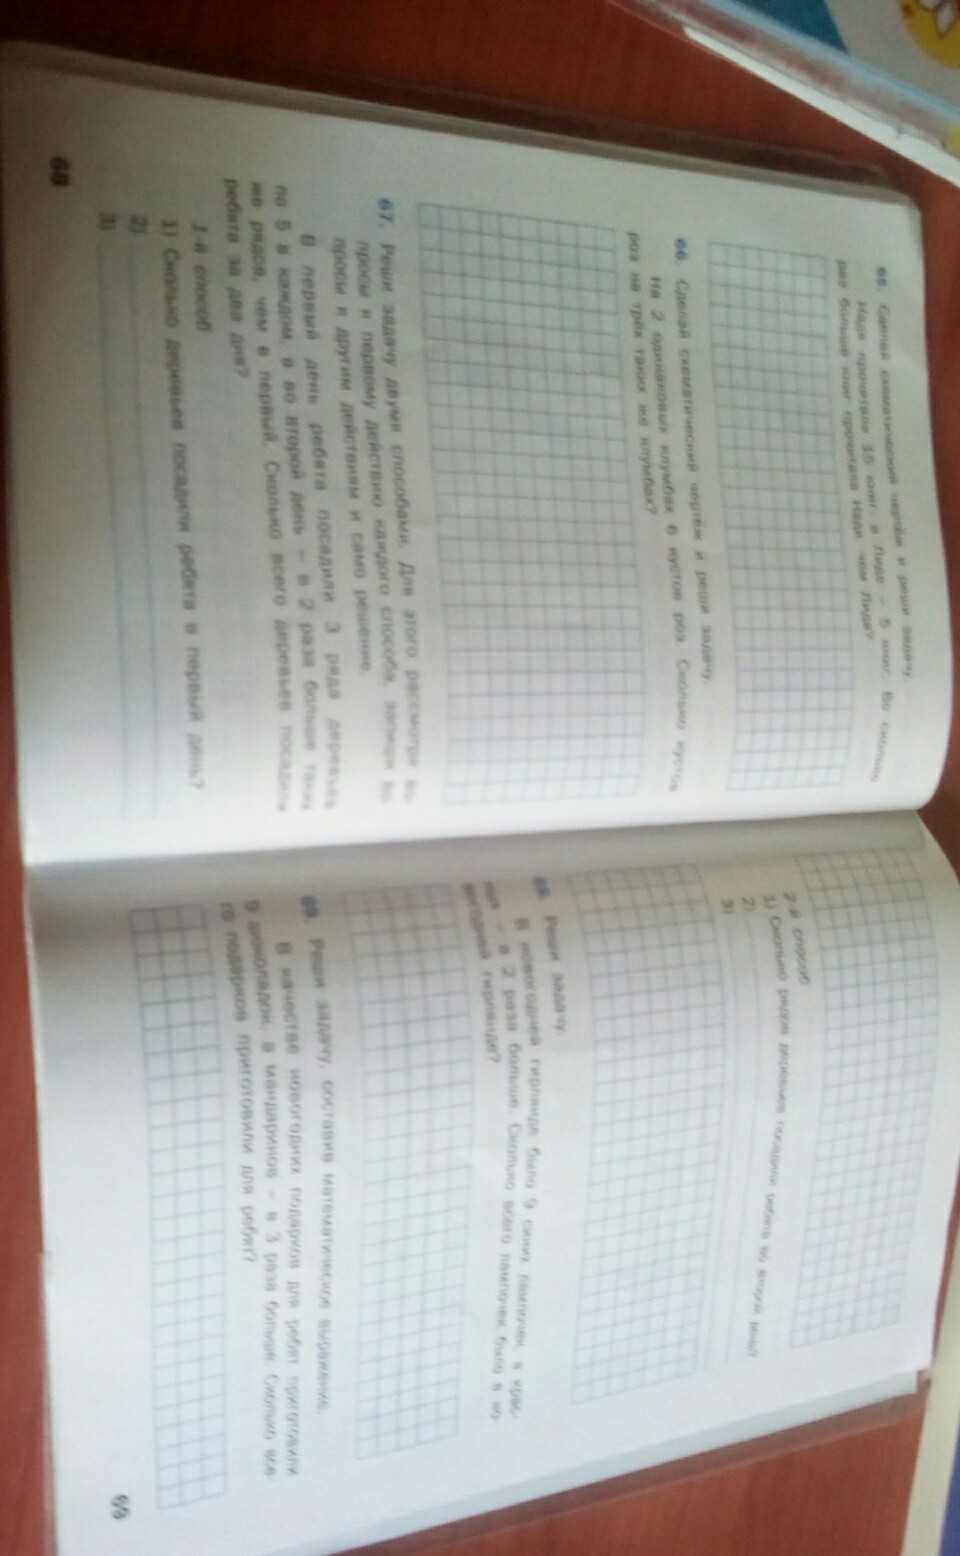 Сделай схематический чертёж и реши задачу.
Надя прочитала 15 книг, а Лида – 5 книг. Во сколько
раз больше книг прочитала Надя, чем Лида?
66. Сделай схематический чертёж и реши задачу.
На 2 одинаковых клумбах 6 кустов роз. Сколько кустов
роз на трёх таких же клумбах?
67. Реши задачу двумя способами. Для этого рассмотри во-
просы к первому действию каждого способа, запиши во-
просы к другим действиям и само решение.
В первый день ребята посадили 3 ряда деревьев
по 5 в каждом, а во второй день – в 2 раза больше таких
же рядов, чем в первый. Сколько всего деревьев посадили
ребята за два дня?
1-й способ
1) Сколько деревьев посадили ребята в первый день?
2)
3)
68
2-й способ
1) Сколько рядов деревьев посадили ребята во второй день?
2)
3)
68. Реши задачу.
В новогодней гирлянде было 9 синих лампочек, а крас-
ных – в 2 раза больше. Сколько всего лампочек было в но-
вогодней гирлянде?
69. Реши задачу, составив математическое выражение.
В качестве новогодних подарков для ребят приготовили
9 шоколадок, а мандаринов – в 3 раза больше. Сколько все-
го подарков приготовили для ребят?
69